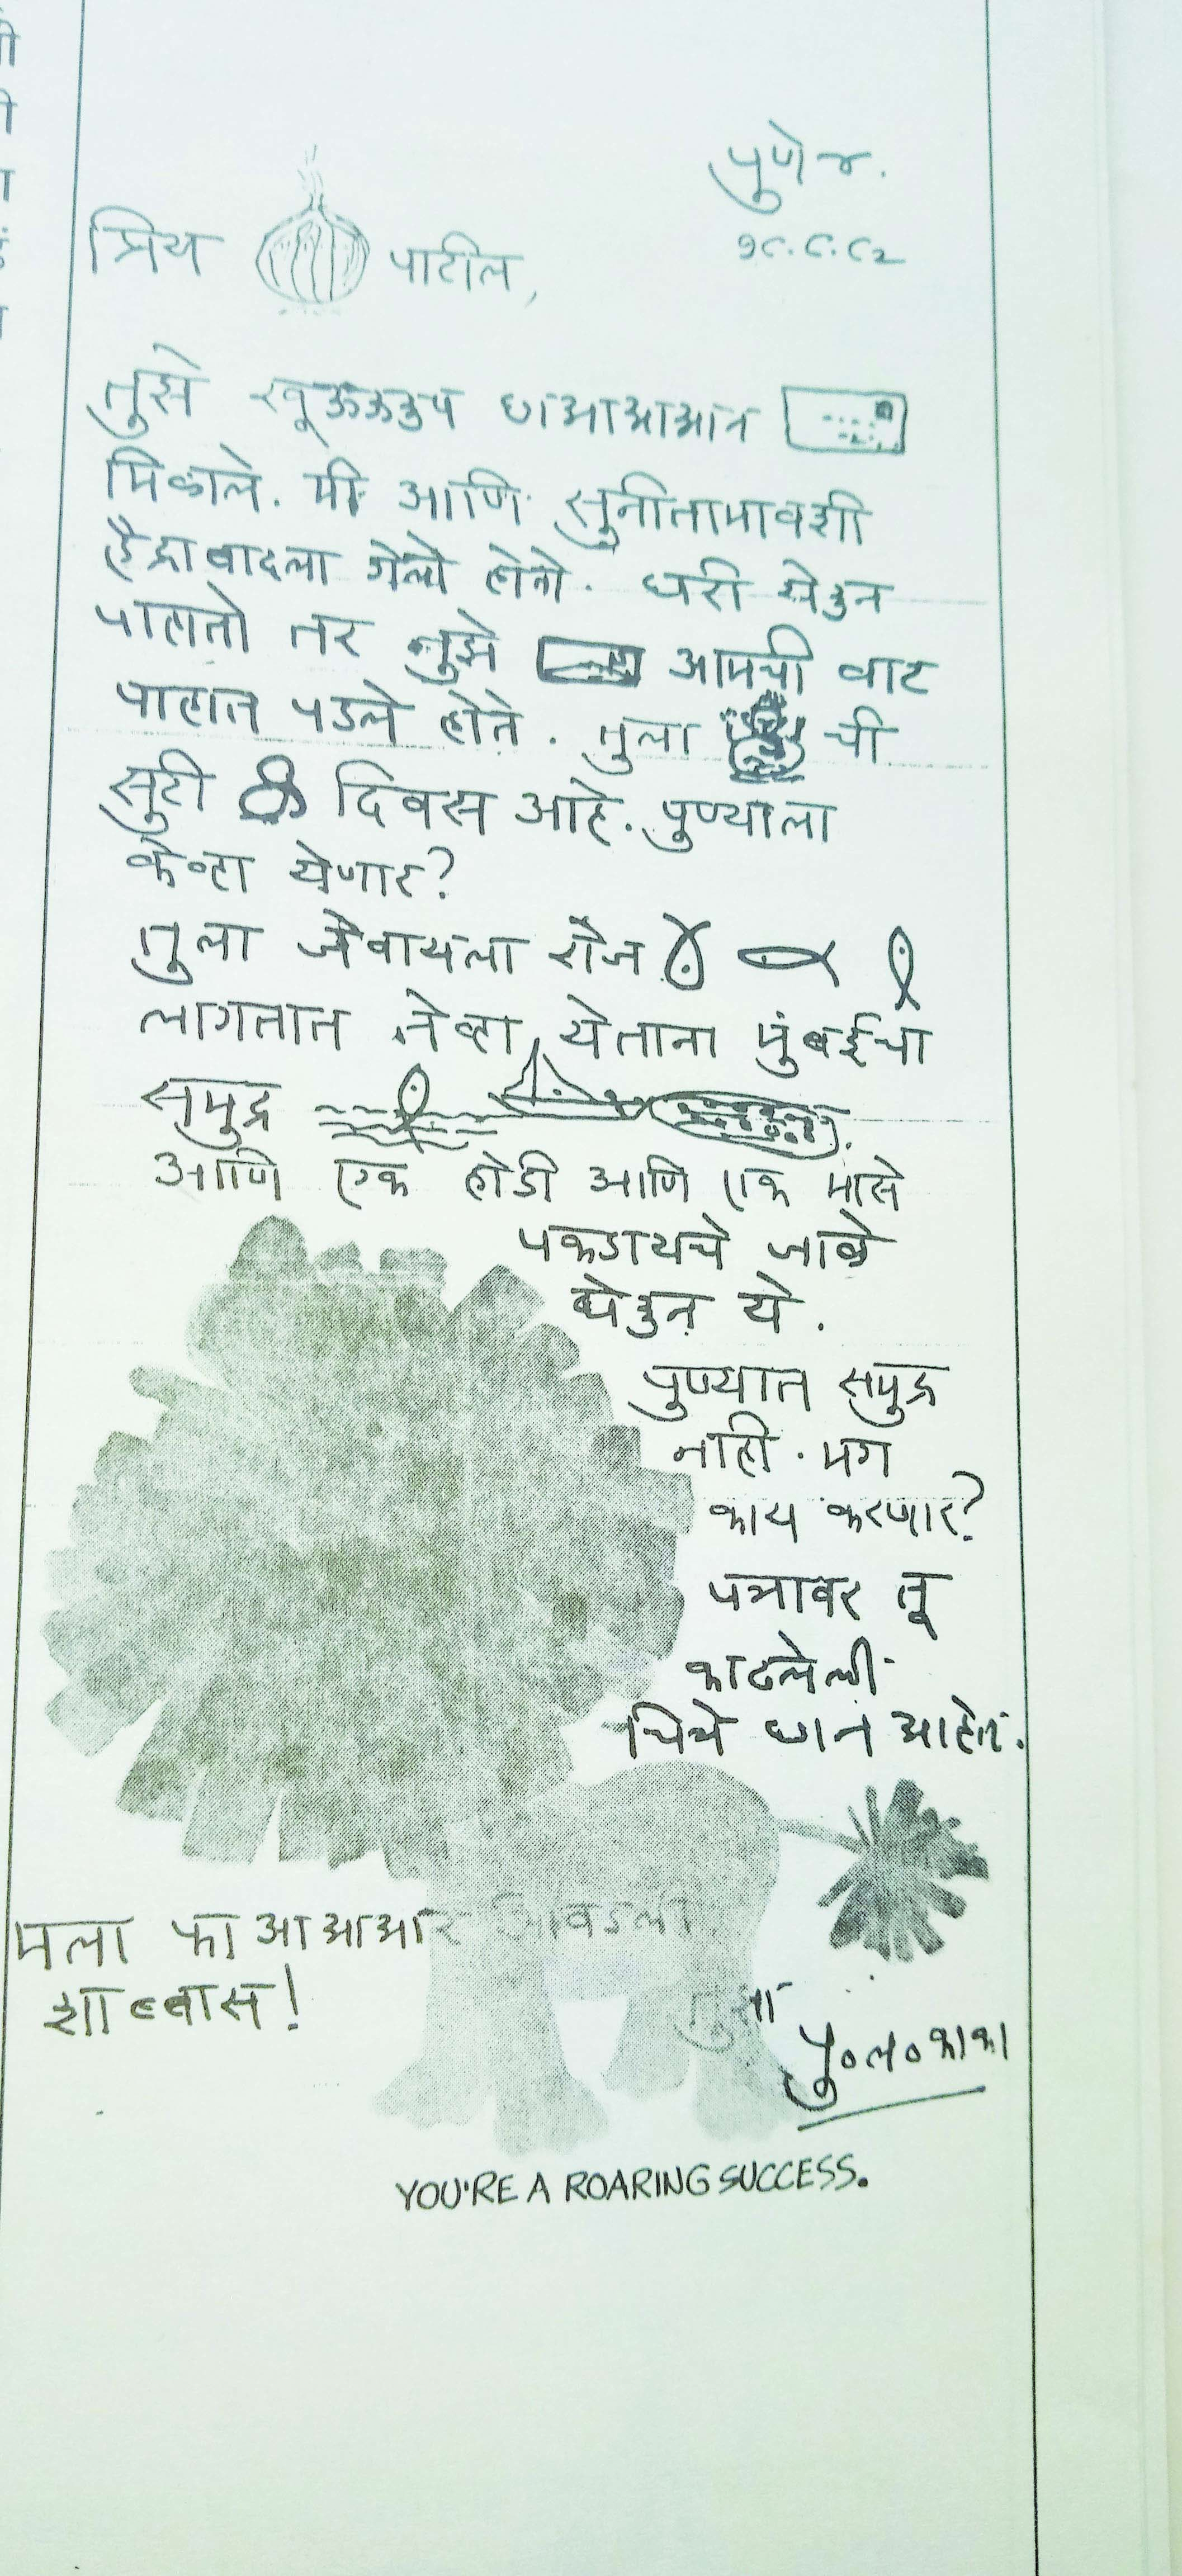 पुणे ४.
१८.८.८२
प्रिय पाटील,
तुझे खूऊऊउप छाआआआआन
मिळाले. मी आणि सुनीतामावशी
हैद्राबादला गेलो होतो. घरी येउन
पाहातो तर तुझे आमची वाट
पाहात पडले होते. तुला ची
सुटी दिवस आहे. पुण्याला
केव्हा येणार?
तुला जेवायला रोज
लागतात तेव्हा येताना मुंबईचा
समुद्र
आणि एक होडी आणि एक मासे
पकडायचे जाळे
घेउन ये.
पुण्यात समुद्र
नाही. मग
काय करणार?
पत्रावर तू
काढलेली
चित्रे छान आहेत.
मला फाआआआआर आवडली
शाब्बास!
तुझा
पु०ल०काका
YOU'RE A ROARING SUCCESS.